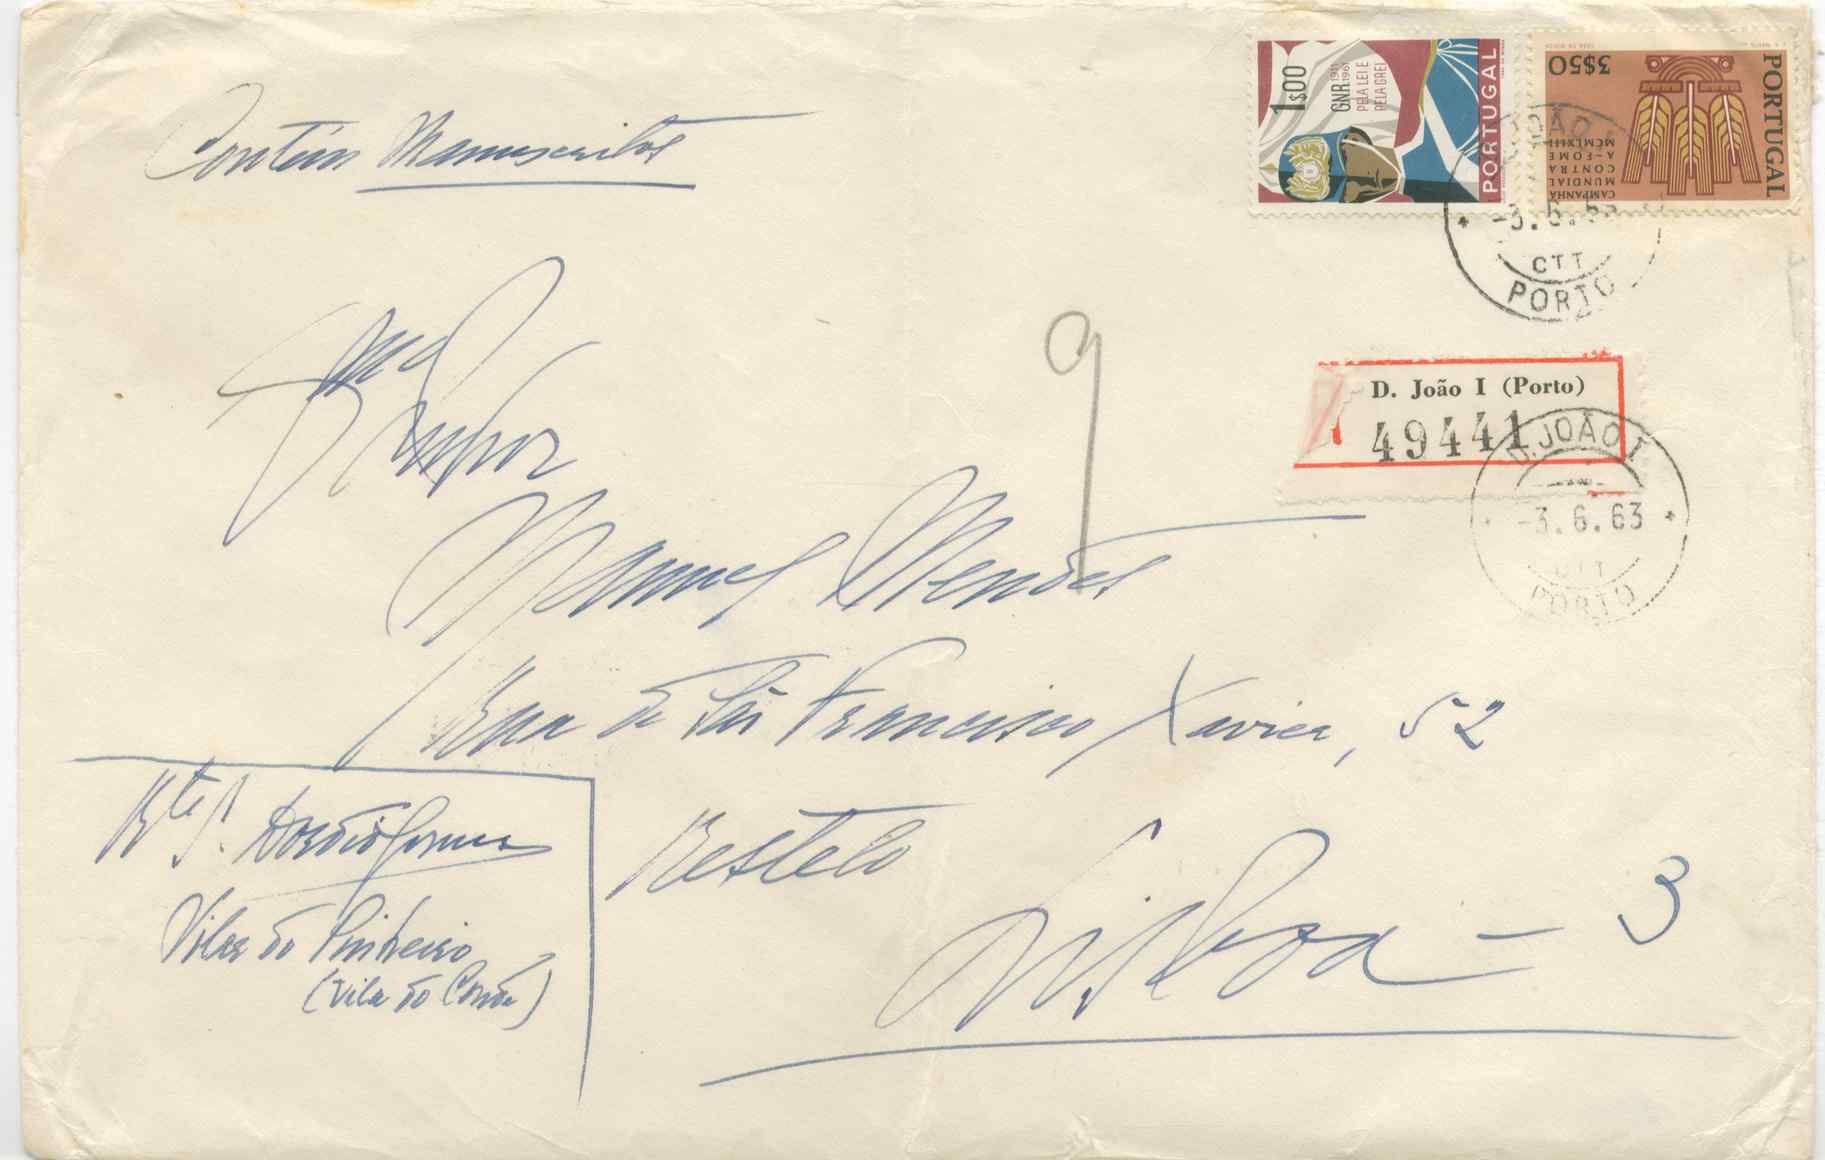 Contém Manuscritos
1$00
GNR 1911 1961
PELA LEI E
PELA GREI
PORTUGAL
3$50
CAMPANHA
MUNDIAL
CONTRA
A-FOME
MCMLXIII
PORTUGAL
JOÃO
-3.6.63
CTT
PORTO
Exmo
Senhor
9
D. João I (Porto)
49441
D. JOÃO I
-3.6.63
CTT
PORTO
Manuel Mendes
Rua de São Francisco Xavier, 52
Restelo
Lisboa - 3
Rte
Vilar do Pinheiro
(Vila do Conde)